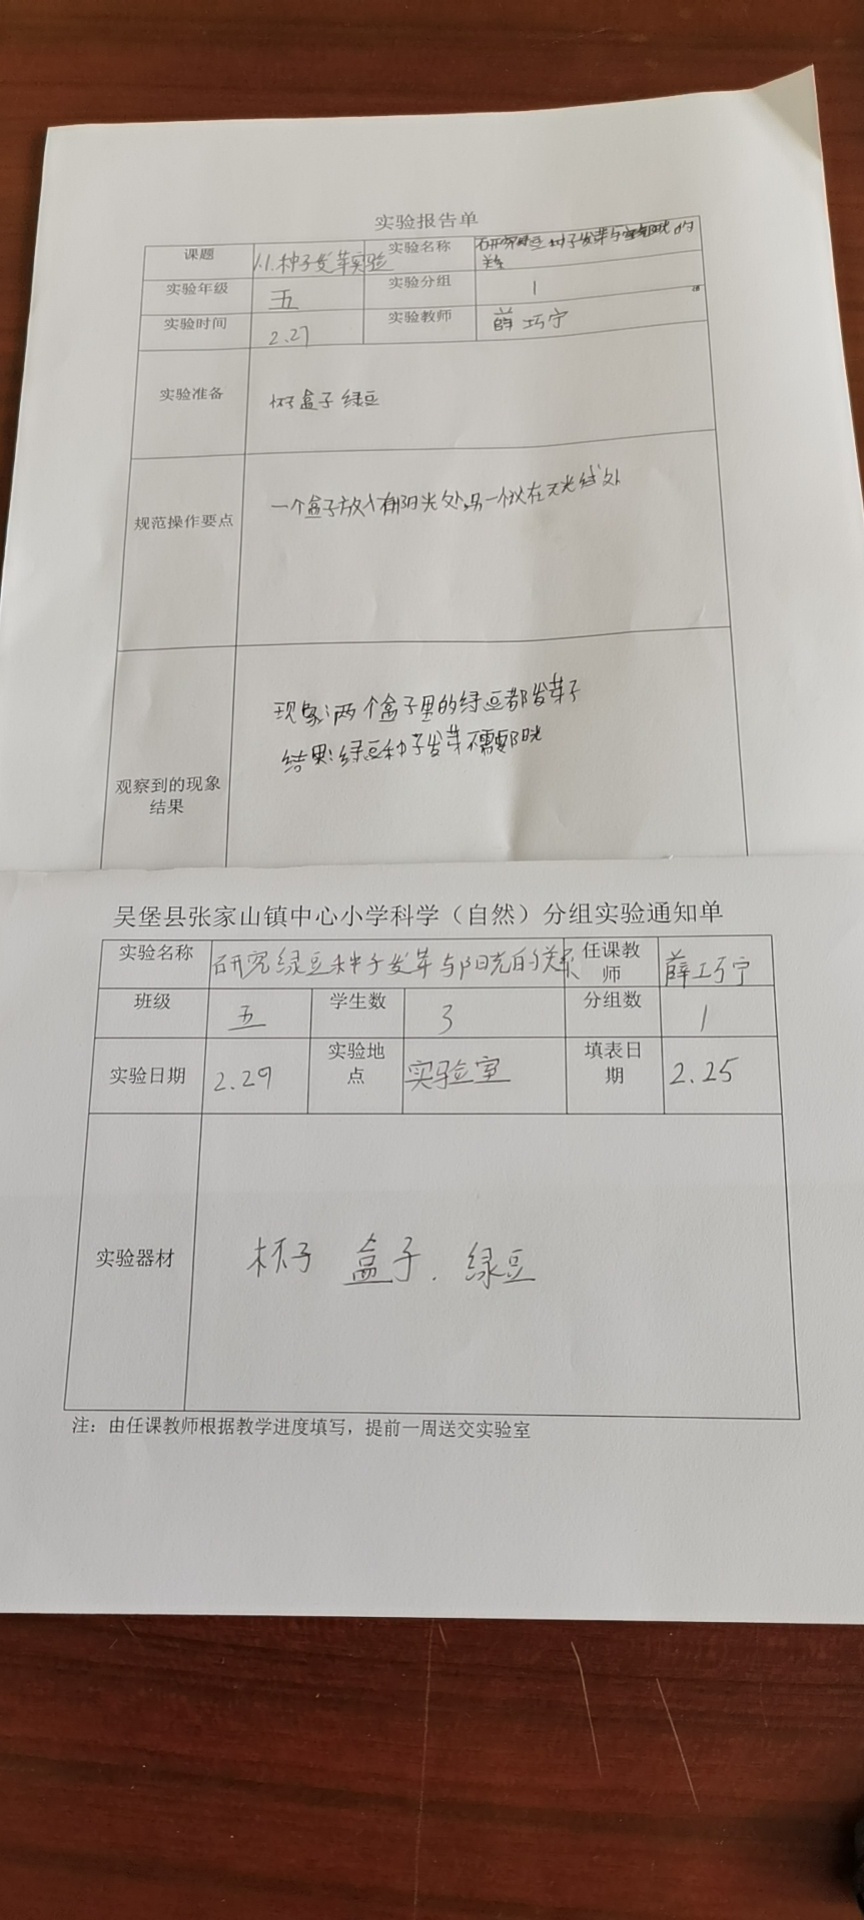 实验报告单
课题 1.1.种子发芽实验 实验名称 研究绿豆种子发芽与阳光的
关系
实验年级 五 实验分组 1
实验时间 2.27 实验教师 薛巧宁
实验准备 杯子 盒子 绿豆
规范操作要点 一个盒子放入有阳光处,另一个放在无光线处
现象:两个盒子里的绿豆都发芽了
结果:绿豆种子发芽不需要阳光
观察到的现象
结果
吴堡县张家山镇中心小学科学（自然）分组实验通知单
实验名称 研究绿豆种子发芽与阳光的关系 任课教
师 薛巧宁
班级 五 学生数 3 分组数 1
实验日期 2.29 实验地
点 实验室 填表日
期 2.25
实验器材 杯子 盒子. 绿豆
注：由任课教师根据教学进度填写，提前一周送交实验室